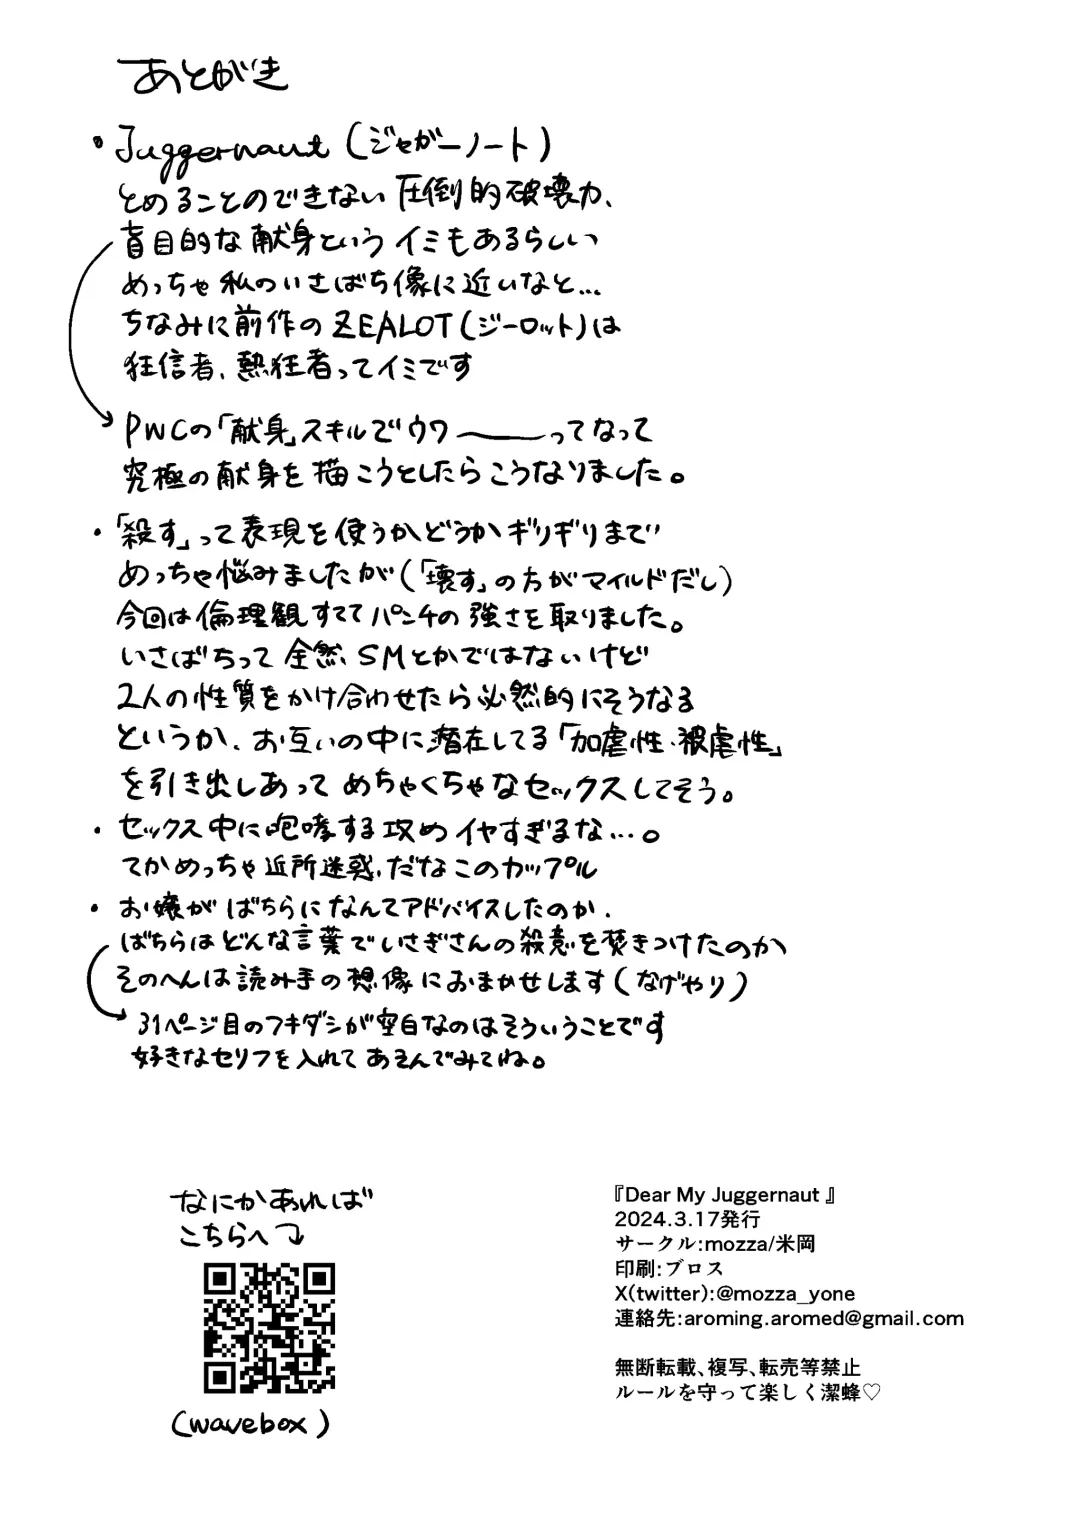 あとがき
・Juggernaut（ジャガーノート）
とめることのできない圧倒的破壊力、
盲目的な献身というイミもあるらしい
めっちゃ私のいさばち像に近いなと…
ちなみに前作のZEALOT（ジーロット）は
狂信者、熱狂者ってイミです
PWCの「献身」スキルでウワーーーってなって
究極の献身を描こうとしたらこうなりました。
・「殺す」って表現を使うかどうかギリギリまで
めっちゃ悩みましたが（「壊す」の方がマイルドだし）
今回は倫理観すててパンチの強さを取りました。
いさばちって全然、SMとかではないけど
2人の性質をかけ合わせたら必然的にそうなる
というか、お互いの中に潜在してる「加虐性・被虐性」
を引き出しあってめちゃくちゃなセックスしてそう。
・セックス中に咆哮する攻めイヤすぎるな…。
てかめっちゃ近所迷惑、だなこのカップル
・お嬢がばちらになんてアドバイスしたのか、
ばちらはどんな言葉でいさぎさんの殺意を焚きつけたのか
そのへんは読み手の想像におまかせします（なげやり）
31ページ目のフキダシが空白なのはそういうことです
好きなセリフを入れてあそんでみてね。
なにかあれば
こちらへ
(wavebox)
『Dear My Juggernaut 』
2024.3.17発行
サークル:mozza/米岡
印刷:ブロス
X(twitter):@mozza_yone
連絡先:aroming.aromed@gmail.com
無断転載、複写、転売等禁止
ルールを守って楽しく潔蜂♡